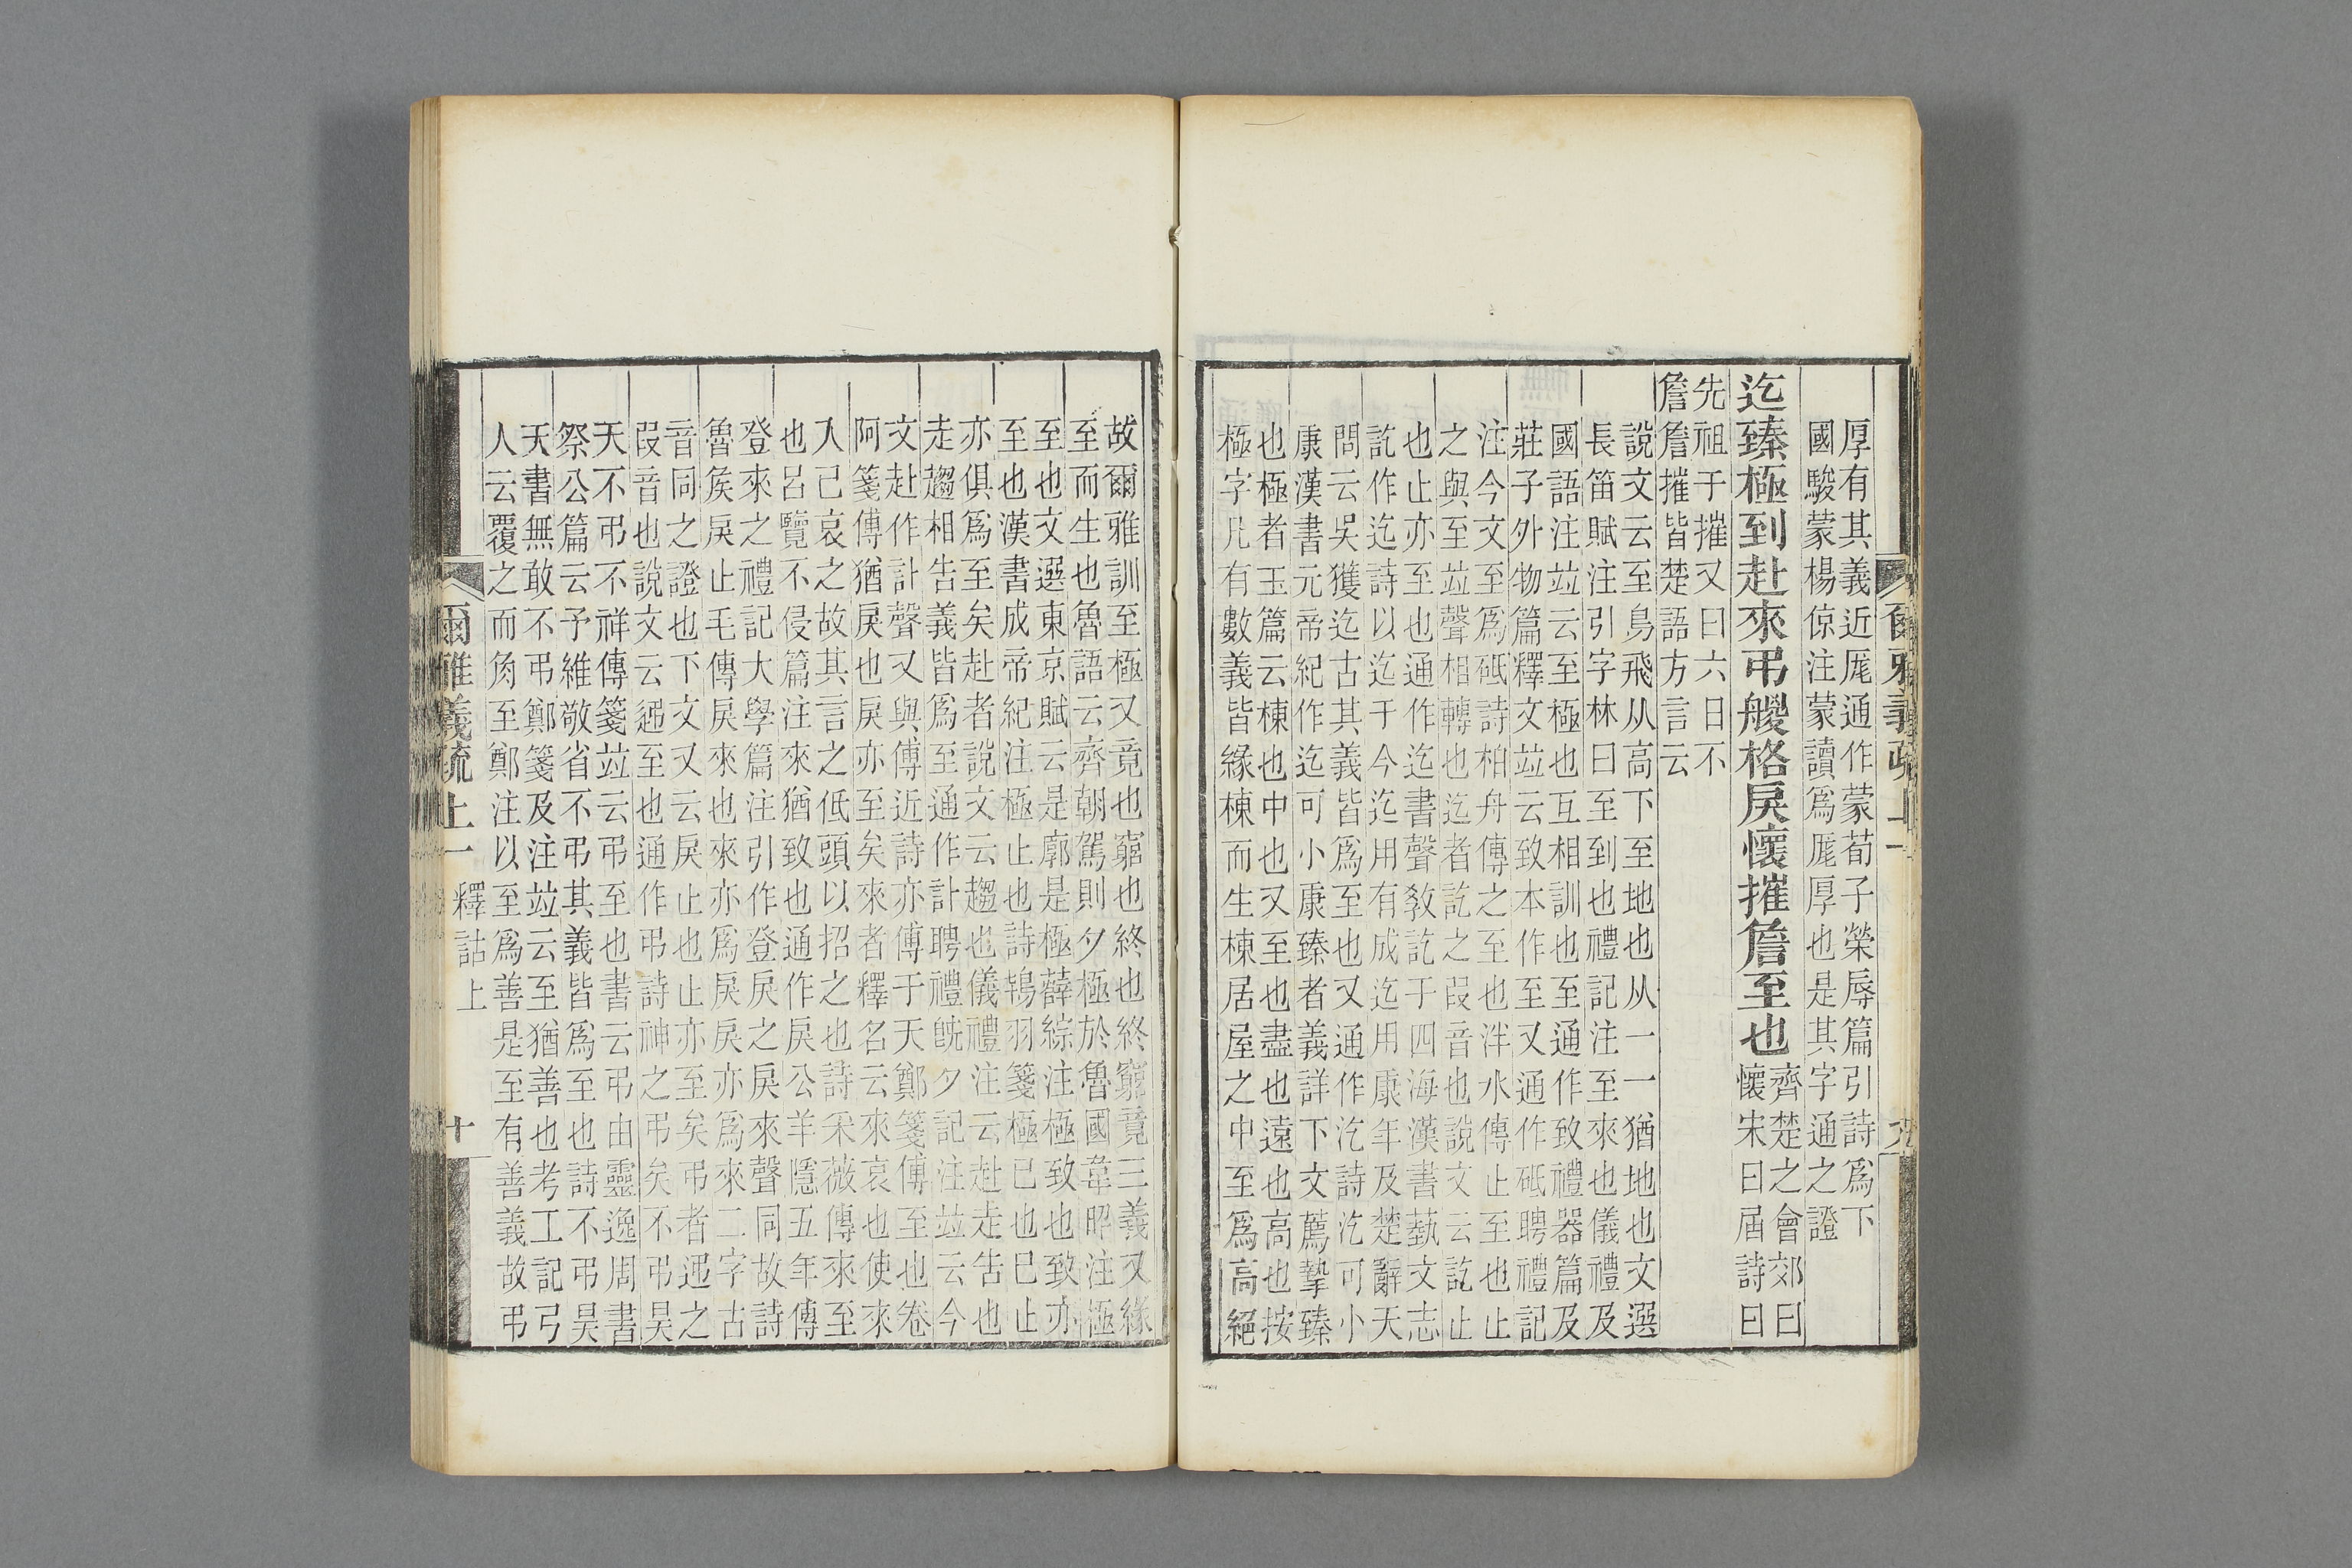 厚有其義近厖通作蒙荀子榮辱篇引詩爲下
國駿蒙楊倞注蒙讀爲厖厚也是其字通之證
迄臻極到赴來弔艐格戾懷摧詹至也齊楚之會郊曰
懷宋曰屆詩曰
先祖于摧又曰六日不
詹詹摧皆楚語方言云
說文云至鳥飛从高下至地也从一一猶地也文選
長笛賦注引字林曰至到也禮記注至來也儀禮及
國語注竝云至極也互相訓也至通作致禮器篇及
莊子外物篇釋文竝云致本作至又通作砥聘禮記
注今文至爲砥詩柏舟傳之至也泮水傳止至也止
之與至竝聲相轉也迄者訖之叚音也說文云訖止
也止亦至也通作迄書聲敎訖于四海漢書藝文志
訖作迄詩以迄于今迄用有成迄用康年及楚辭天
問云吳獲迄古其義皆爲至也又通作汔詩汔可小
康漢書元帝紀作迄可小康臻者義詳下文薦摯臻
也極者玉篇云棟也中也又至也盡也遠也高也按
極字凡有數義皆緣棟而生棟居屋之中至爲高絕
爾雅義疏上一
故爾雅訓至極又竟也窮也終也終窮竟三義又緣
至而生也魯語云齊朝駕則夕極於魯國韋昭注極
至也文選東京賦云是廓是極薛綜注極致也致亦
至也漢書成帝紀注極止也詩鴇羽箋極已也已止
亦俱爲至矣赴者說文云趨也儀禮注云赴走告也
走趨相告義皆爲至通作訃聘禮旣夕記注竝云今
文赴作訃聲又與傅近詩亦傅于天鄭箋傅至也卷
阿箋傅猶戾也戾亦至矣來者釋名云來哀也使來
入己哀之故其言之低頭以招之也詩采薇傳來至
也呂覽不侵篇注來猶致也通作戾公羊隱五年傳
登來之禮記大學篇注引作登戾之戾來聲同故詩
魯矦戾止毛傳戾來也來亦爲戾戾亦爲來二字古
音同之證也下文又云戾止也止亦至矣弔者迅之
叚音也說文云迅至也通作弔詩神之弔矣不弔昊
天不弔不祥傳箋竝云弔至也書云弔由靈逸周書
祭公篇云予維敬省不弔其義皆爲至也詩不弔昊
天書無敢不弔鄭箋及注竝云至猶善也考工記弓
人云覆之而角至鄭注以至爲善是至有善義故弔
爾雅義疏上一　釋詁上　十